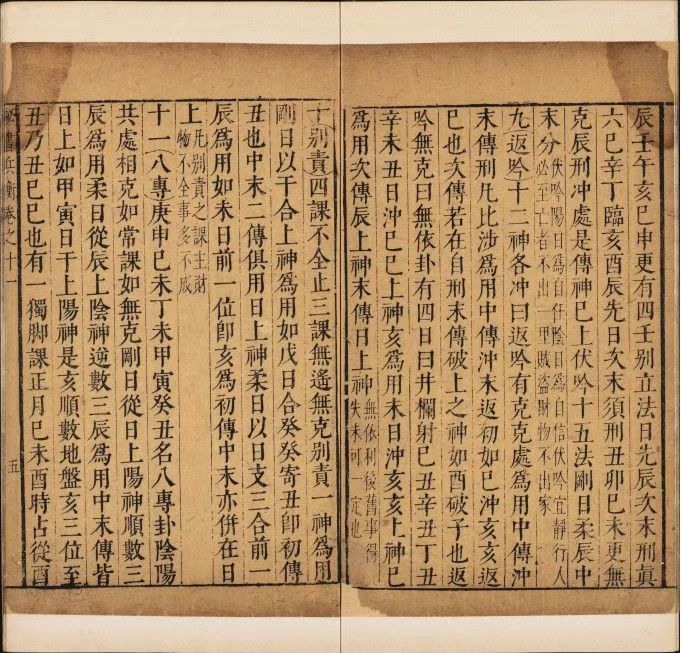 辰壬午亥巳申更有四壬别立法日先辰次末刑真
六巳辛丁臨亥酉辰先日次末須刑丑卯巳未更無
克辰刑冲處是傳神巳上伏吟十五法剛日柔辰中
末分伏吟陽日爲自任陰日爲自信伏吟宜靜行人
必至亡者不出一里賊盜財物不出家
九返吟十二神各冲曰返吟有克克處爲用中傳冲
末傳刑凡比涉爲用中傳冲末返初如巳冲亥亥返
巳也次傳若在自刑末傳破上之神如酉破子也返
吟無克曰無依卦有四日曰井欄射巳丑辛丑丁丑
辛未丑日沖巳巳上神亥爲用未日沖亥亥上神巳
爲用次傳辰上神末傳日上神無依利後舊事得
失未可一定也
十别責四課不全止三課無遙無克别責一神爲用
剛日以干合上神爲用如戊日合癸癸寄丑卽初傳
丑也中末二傳俱用日上神柔日以日支三合前一
辰爲用如未日前一位卽亥爲初傳中末亦併在日
上凡别責之課主財
物不全事多不成
十一八專庚申巳未丁未甲寅癸丑名八專卦陰陽
共處相克如常課如無克剛日從日上陽神順數三
辰爲用柔日從辰上陰神逆數三辰爲用中末傳皆
日上如甲寅日干上陽神是亥順數地盤亥三位至
丑乃丑巳巳也有一獨脚課正月巳未酉時占從酉
書兵衡卷之十一
五